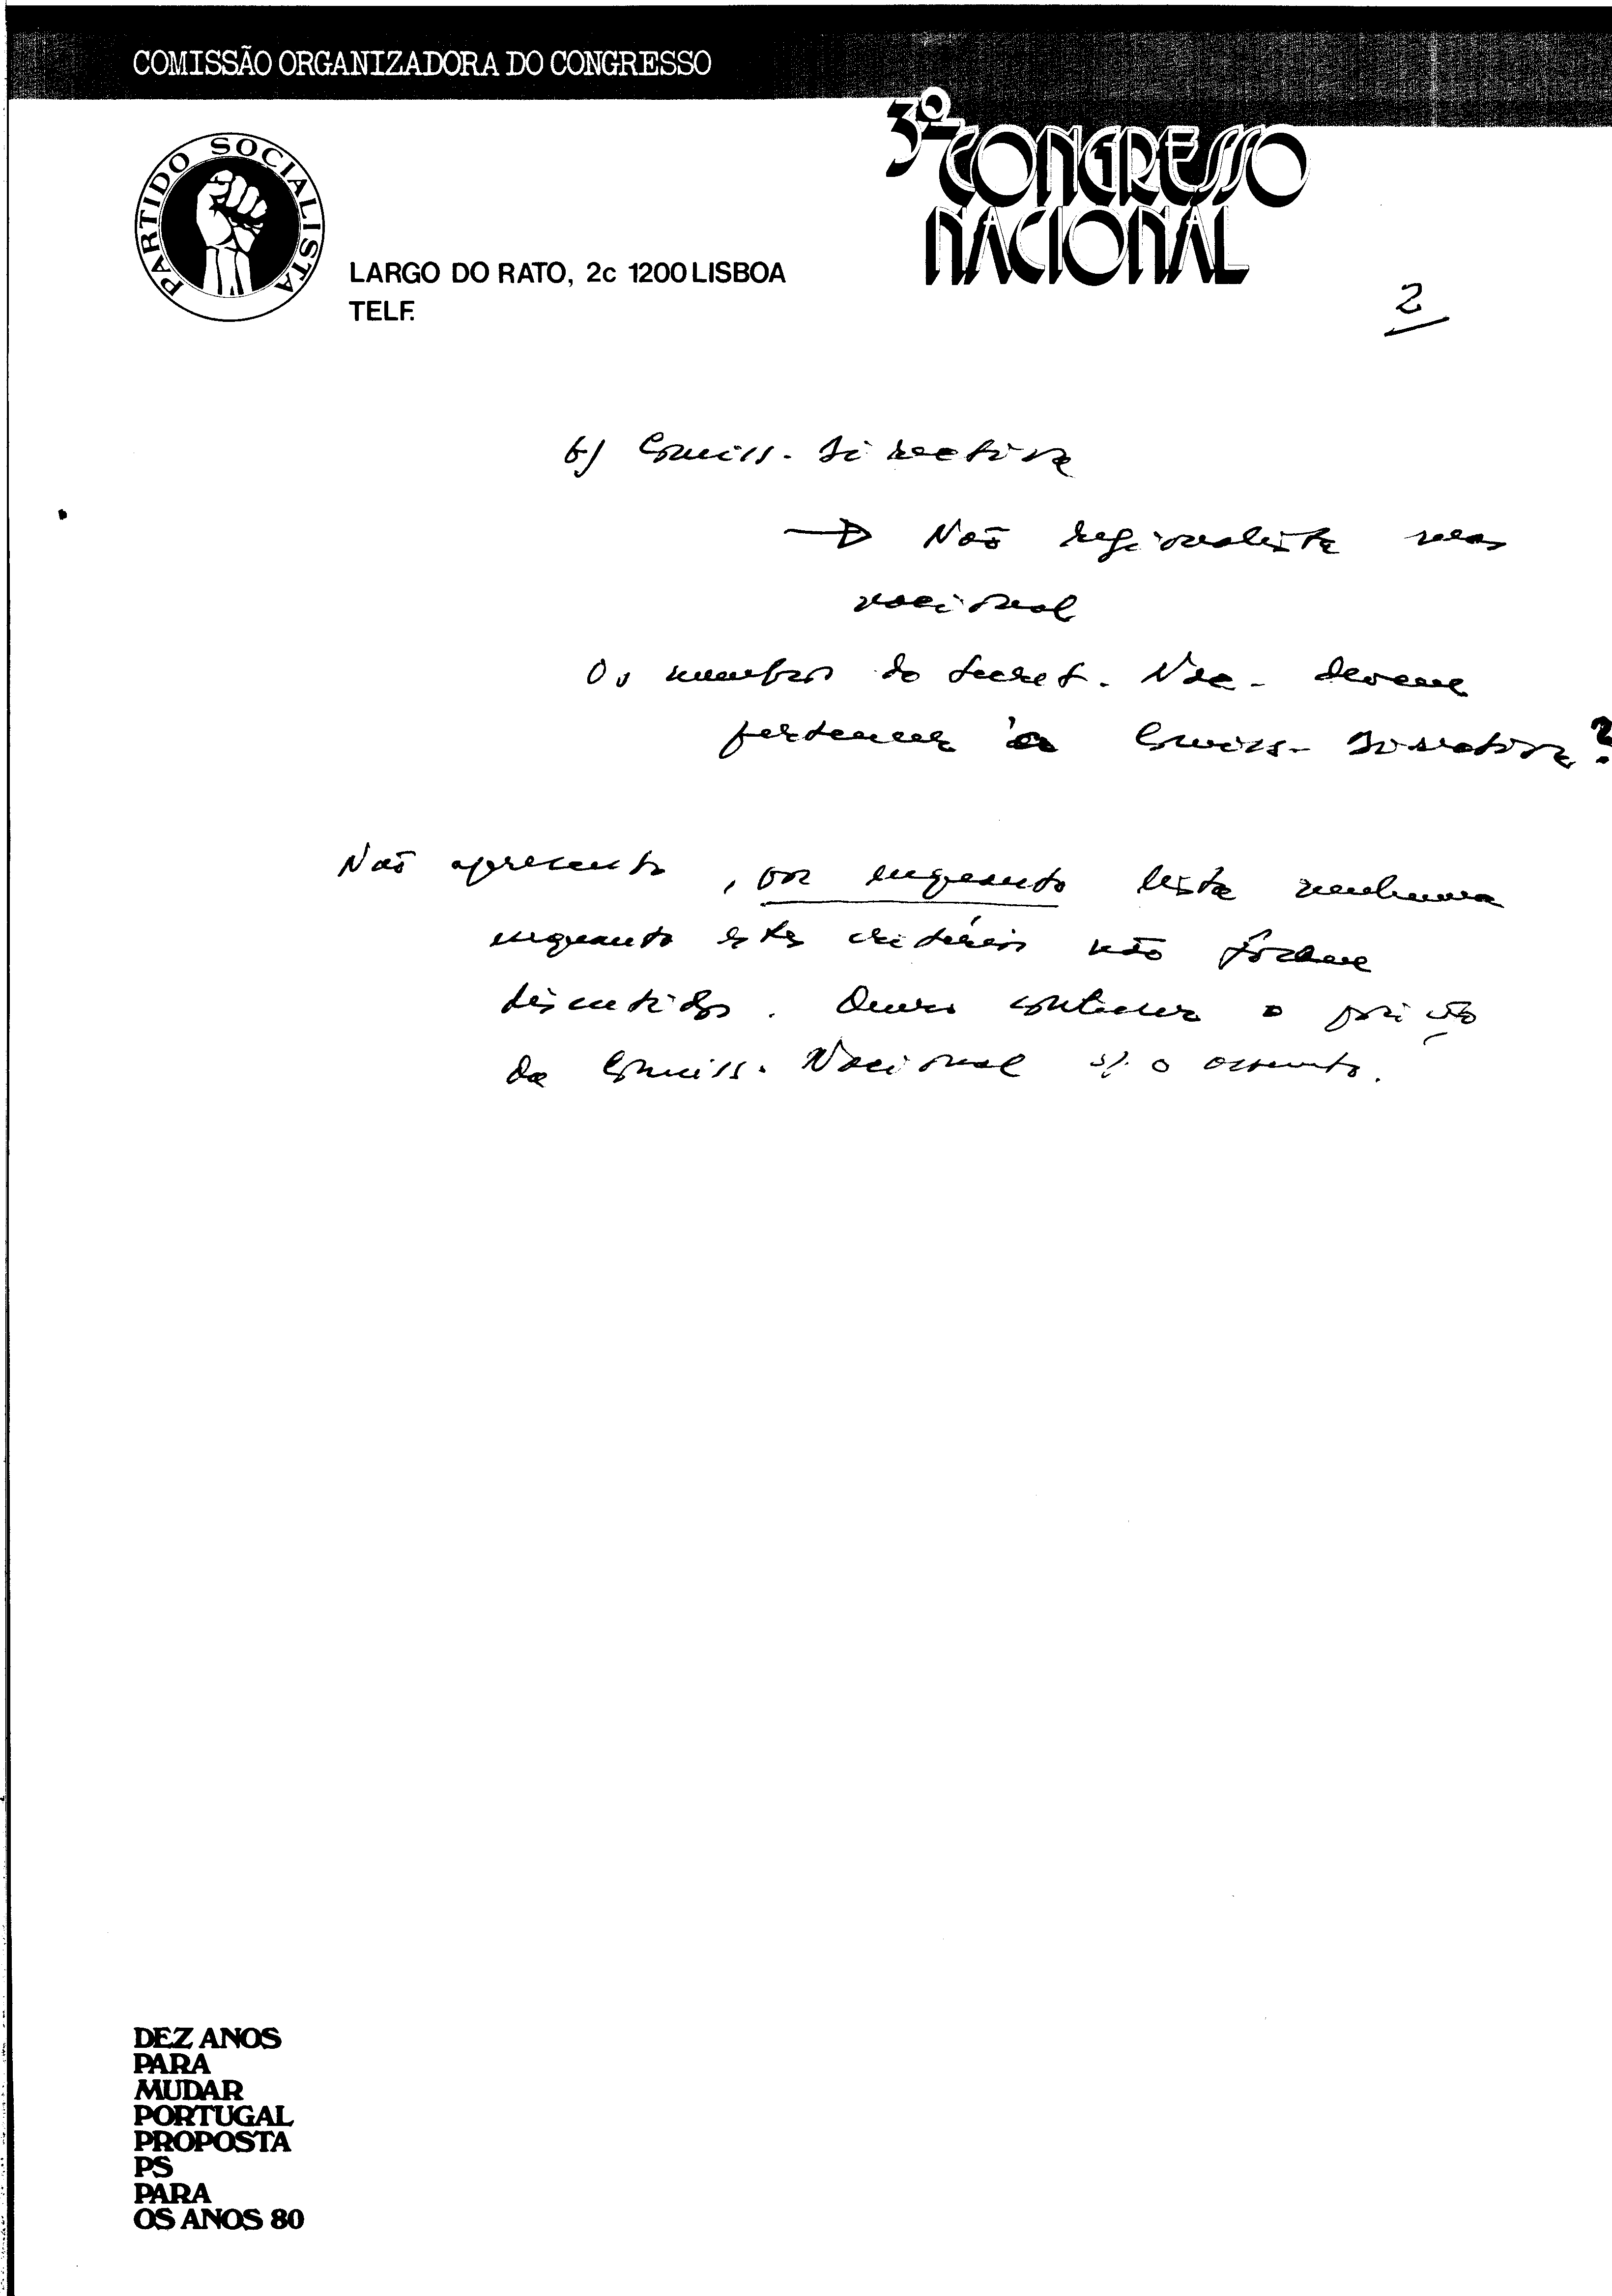 COMISSÃO ORGANIZADORA DO CONGRESSO
3º CONGRESSO
NACIONAL
PARTIDO SOCIALISTA
LARGO DO RATO, 2c 1200 LISBOA
TELF.
2
b) Comiss. Directiva
→ Não regionalista mas
nacional
Os membros do Secret. Nac. devem
pertencer à Comiss. Directiva?
Não apresento, por enquanto lista nenhuma
enquanto estes critérios não fôrem
discutidos. Quero conhecer a posição
da Comiss. Nacional s/. o assunto.
DEZ ANOS
PARA
MUDAR
PORTUGAL
PROPOSTA
PS
PARA
OS ANOS 80